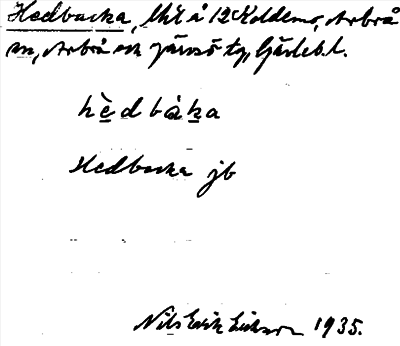 Hedbacka, lht å 12 Koldemo, Arbrå
sn, Arbrå och Järvsö tg, Gävleb. l.
hèdbàka
Hedbacka jb
Nils Erik 1935.